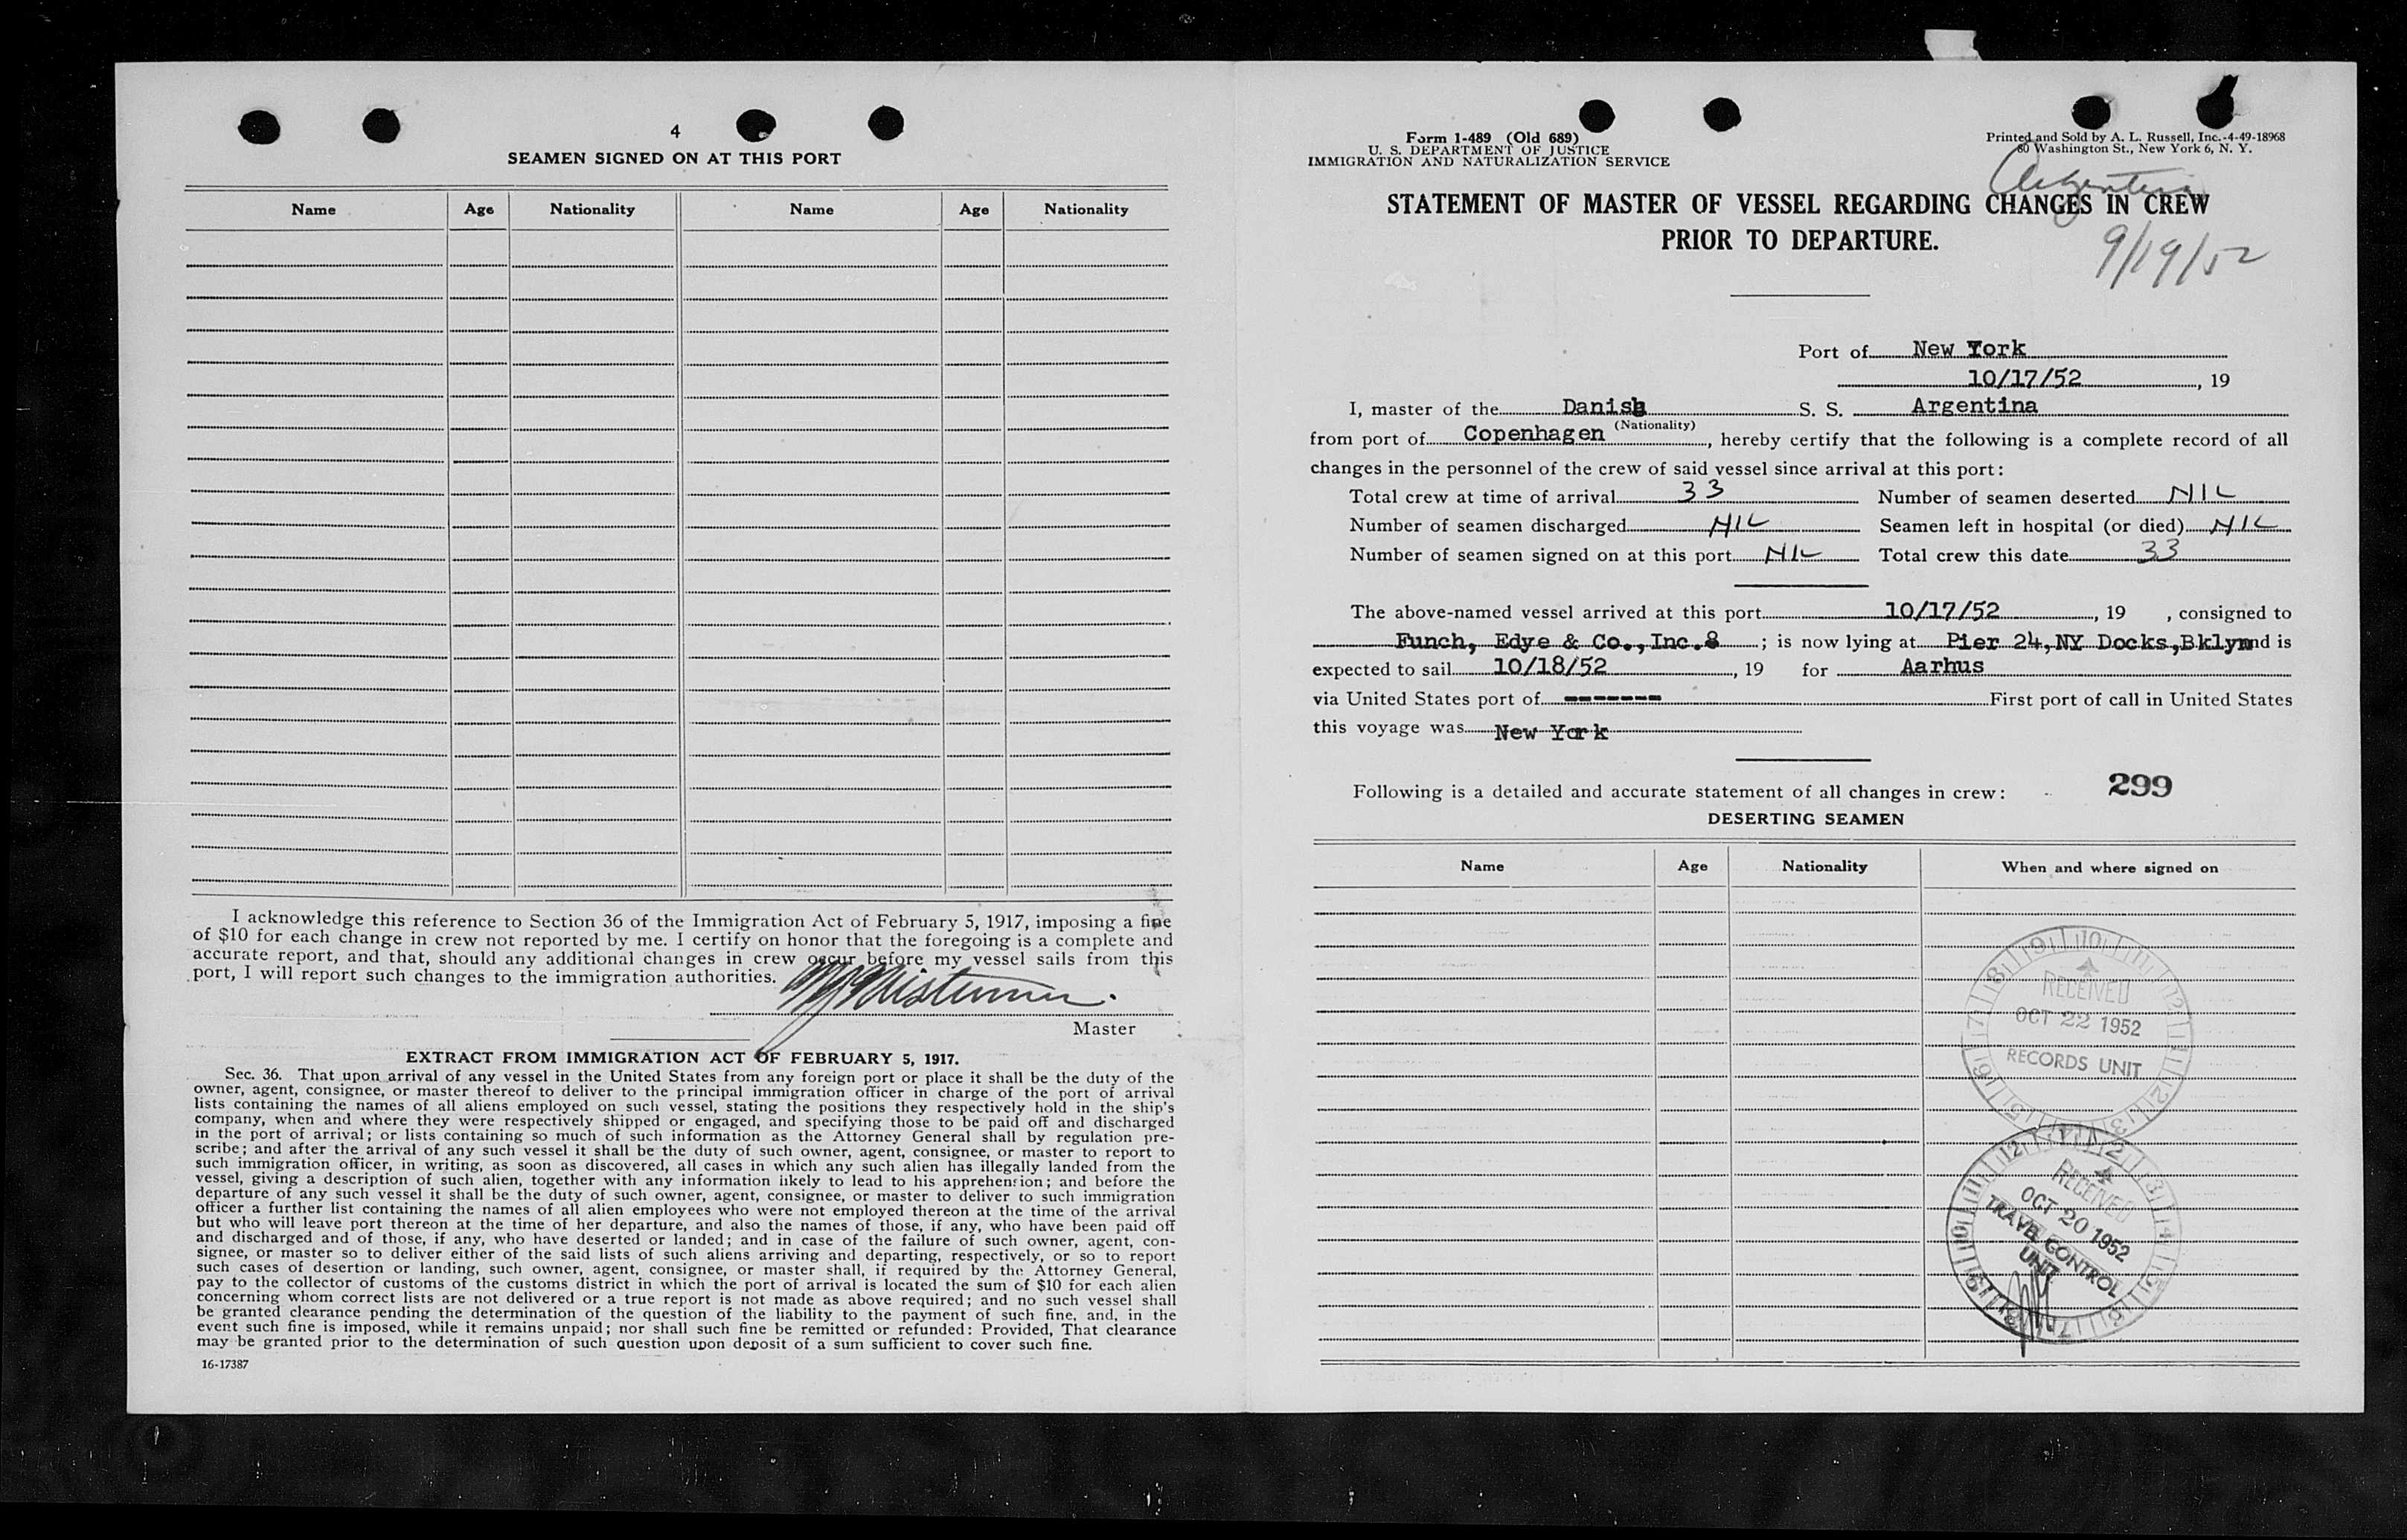 4
SEAMEN SIGNED ON AT THIS PORT
Name Age Nationality Name Age Nationality
I acknowledge this reference to Section 36 of the Immigration Act of February 5, 1917, imposing a fine
of $10 for each change in crew not reported by me. I certify on honor that the foregoing is a complete and
accurate report, and that, should any additional changes in crew occur before my vessel sails from this
port, I will report such changes to the immigration authorities.
Master
EXTRACT FROM IMMIGRATION ACT OF FEBRUARY 5, 1917.
Sec. 36. That upon arrival of any vessel in the United States from any foreign port or place it shall be the duty of the
owner, agent, consignee, or master thereof to deliver to the principal immigration officer in charge of the port of arrival
lists containing the names of all aliens employed on such vessel, stating the positions they respectively hold in the ship's
company, when and where they were respectively shipped or engaged, and specifying those to be paid off and discharged
in the port of arrival; or lists containing so much of such information as the Attorney General shall by regulation pre-
scribe; and after the arrival of any such vessel it shall be the duty of such owner, agent, consignee, or master to report to
such immigration officer, in writing, as soon as discovered, all cases in which any such alien has illegally landed from the
vessel, giving a description of such alien, together with any information likely to lead to his apprehension; and before the
departure of any such vessel it shall be the duty of such owner, agent, consignee, or master to deliver to such immigration
officer a further list containing the names of all alien employees who were not employed thereon at the time of the arrival
but who will leave port thereon at the time of her departure, and also the names of those, if any, who have been paid off
and discharged and of those, if any, who have deserted or landed; and in case of the failure of such owner, agent, con-
signee, or master so to deliver either of the said lists of such aliens arriving and departing, respectively, or so to report
such cases of desertion or landing, such owner, agent, consignee, or master shall, if required by the Attorney General,
pay to the collector of customs of the customs district in which the port of arrival is located the sum of $10 for each alien
concerning whom correct lists are not delivered or a true report is not made as above required; and no such vessel shall
be granted clearance pending the determination of the question of the liability to the payment of such fine, and, in the
event such fine is imposed, while it remains unpaid; nor shall such fine be remitted or refunded: Provided, That clearance
may be granted prior to the determination of such question upon deposit of a sum sufficient to cover such fine.
16-17387
Form 1-489 (Old 689)
U. S. DEPARTMENT OF JUSTICE
IMMIGRATION AND NATURALIZATION SERVICE
Printed and Sold by A. L. Russell, Inc.-4-49-18968
60 Washington St., New York 6, N. Y.
Argentina
STATEMENT OF MASTER OF VESSEL REGARDING CHANGES IN CREW
PRIOR TO DEPARTURE.
9/19/52
Port of New York
10/17/52, 19
I, master of the Danish S. S. Argentina
(Nationality)
from port of Copenhagen, hereby certify that the following is a complete record of all
changes in the personnel of the crew of said vessel since arrival at this port:
Total crew at time of arrival 33 Number of seamen deserted NIL
Number of seamen discharged NIL Seamen left in hospital (or died) NIL
Number of seamen signed on at this port NIL Total crew this date 33
The above-named vessel arrived at this port 10/17/52, 19 , consigned to
Funch, Edye & Co., Inc.8 ; is now lying at Pier 24, NY Docks, Bklyn nd is
expected to sail 10/18/52, 19 for Aarhus
via United States port of ------- First port of call in United States
this voyage was New York
Following is a detailed and accurate statement of all changes in crew: 299
DESERTING SEAMEN
Name Age Nationality When and where signed on
9 10 11 12 1 2 3 4 5 6 7 8
RECEIVED
OCT 22 1952
RECORDS UNIT
12 1 2 3 4 5 6 7 8 9 10 11
RECEIVED
OCT 20 1952
TRAVEL CONTROL
UNIT